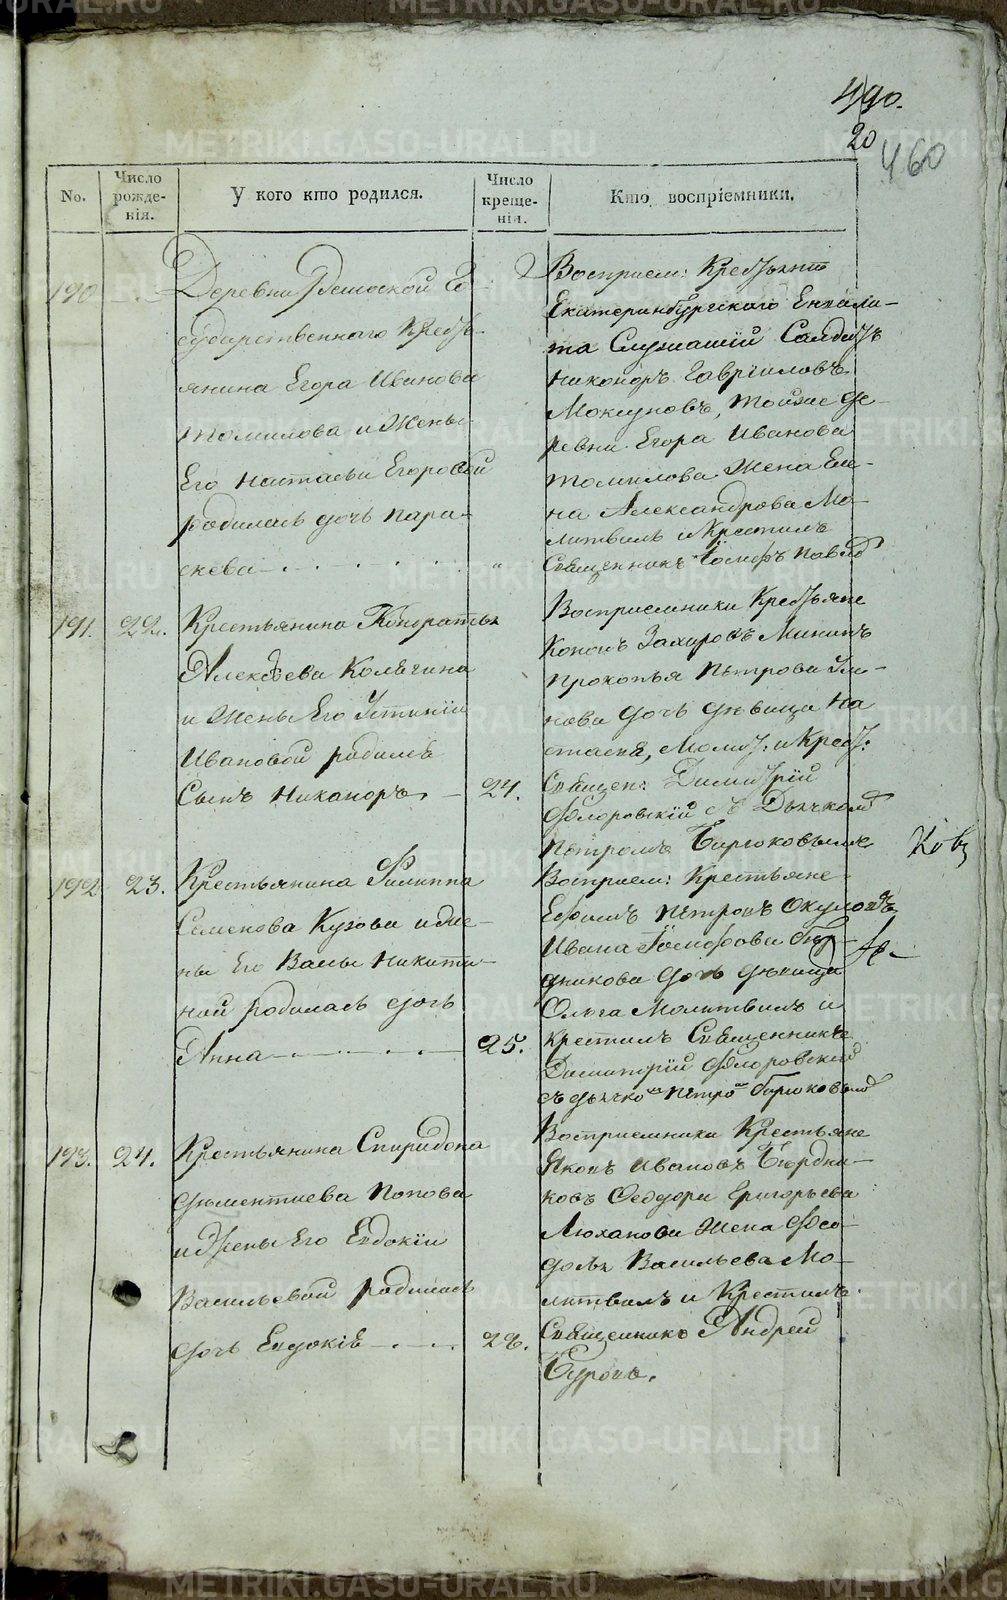 490.
20
460
No.
Число рожде-нія.
У кого кто родился.
Число креще-нія.
Кто воспріемники.
190
Деревни Го-
сударственнаго Кресть-
янина Егора Иванова
томилова и Жены
Его Настасьи Егоровой
родилась дочь пара-
скева
Восприем: Крестьянинъ
Екатеринбургскаго
Служащій Салдатъ
Никоноръ Гавриловъ
тойже де-
ревни Егора Иванова
томилова Жена Еле-
на Александрова Мо-
литвилъ и Крестилъ
Священникъ Іосифъ
191. 22.
Крестьянина
Алексѣева
и Жены Его Устинiи
Ивановой родился
Сынъ Никаноръ 24.
Восприемники Крестьяне
Кононъ Захаровъ Мининъ
прокопья Петрова
нова дочь дѣвица На
стасья, Молит: и Крест:
Священ: Димитрій
Флоровскій съ Дьячкомъ
петромъ Бирюковымъ
192 23.
Крестьянина Филиппа
Семенова Кузова и Же-
ны Его Вассы Никити-
ной родилась дочь
Анна 25.
Восприем: Крестьяне
Ефимъ петровъ Окуловъ
Ивана Іосифова Бер-
дникова дочь дѣвица
Ольга Молитвилъ и
крестилъ Священникъ
Димитрій Флоровскій
съ дьячкомъ петромъ бирюковымъ
193. 24.
Крестьянина Спиридона
дѣментиева попова
и Жены Его Евдокіи
Васильевой родилась
дочь Евдокія 26.
Восприемники Крестьяне
Яковъ Ивановъ Бердни-
ковъ Федора Григорьева
Люханова Жена Фео-
досья Васильева Мо-
литвилъ и Крестилъ
Священникъ Андрей
Буровъ.
METRIKI.GASO-URAL.RU